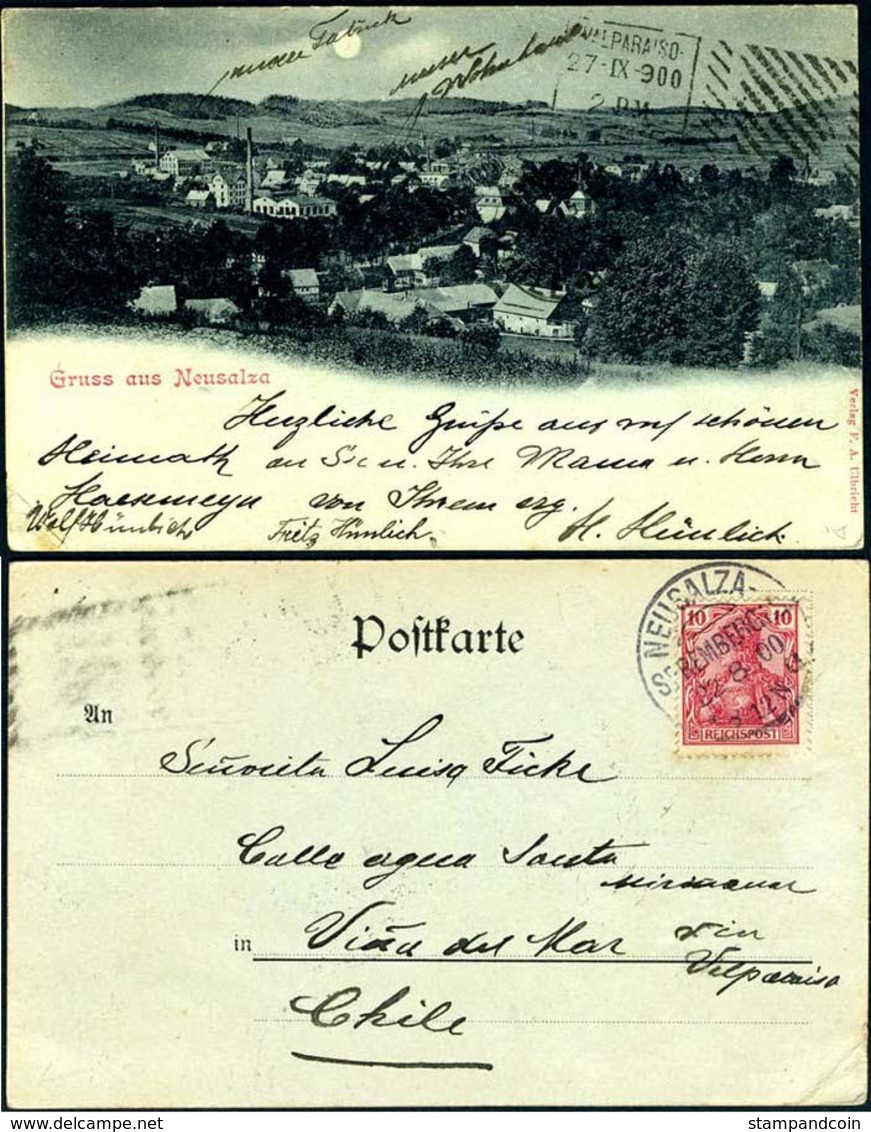 unsere Fabrick
unser
Wohnhaus
VALPARAISO
27-IX-900
2 PM
Gruss aus Neusalza
Herzliche Grüße aus uns schönen
Heimath an Sie u. Ihre Mama u. Herrn
von Ihrem erg.
Wolf Hünlich Fritz Hünlich H. Hünlich
Verlag F. A. Ulbricht
Postkarte
NEUSALZA-
SPREMBERG
22 8 00
12 N
10 10
REICHSPOST
An
Señorita Luisa Ficke
Calle agua Santa
Miramar
in Viña del Mar via
Valparaiso
Chile
stampandcoin